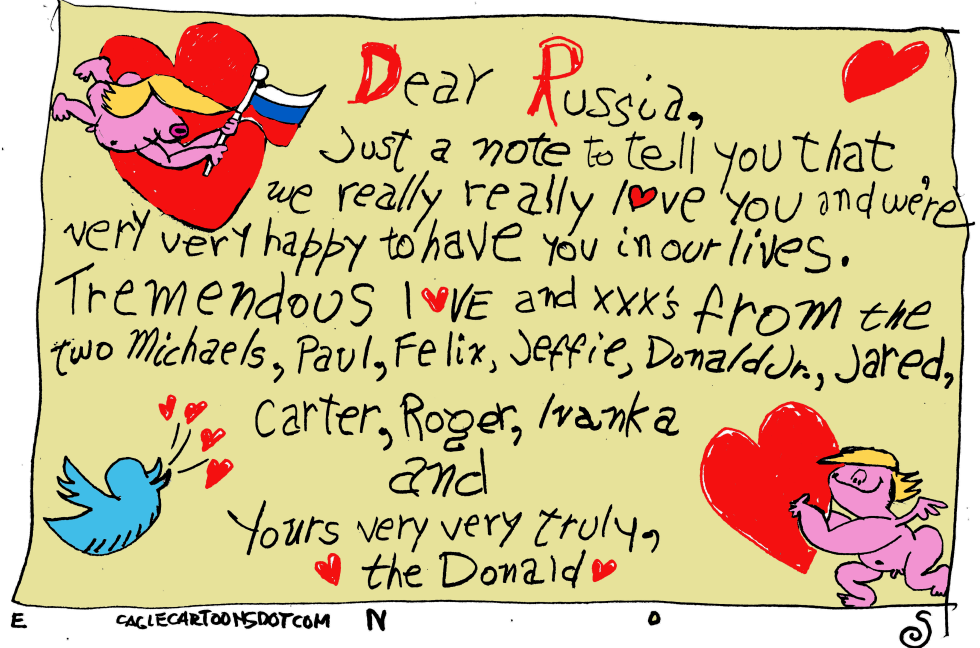 Dear Russia,
Just a note to tell you that
we really really l❤ve you and we're
very very happy to have you in our lives.
Tremendous l❤VE and xxx's from the
two Michaels, Paul, Felix, Jeffie, Donald Jr., Jared,
Carter, Roger, Ivanka
and
Yours very very truly,
the Donald
E CAGLECARTOONSDOTCOM N O S